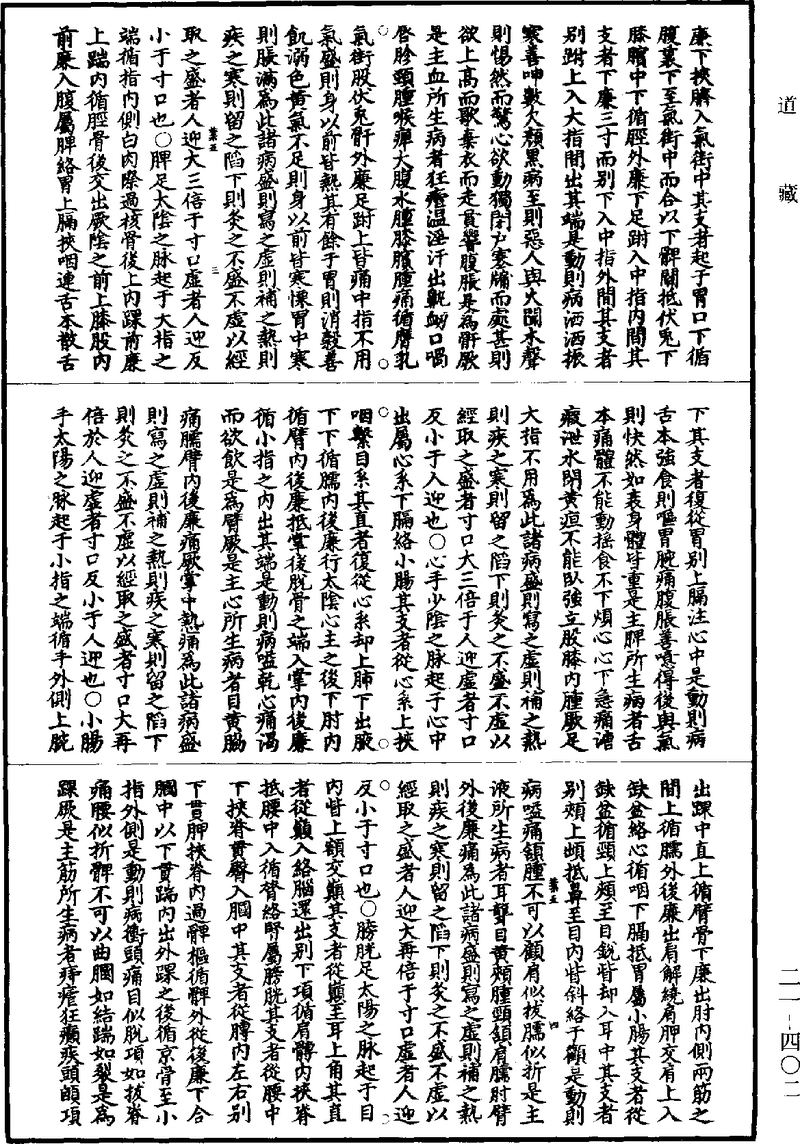 道藏
廉下挾臍入氣街中其支者起于胃口下循
腹裏下至氣街中而合以下髀關抵伏兔下
膝臏中下循脛外廉下足跗入中指內間其
支者下廉三寸而別下入中指外間其支者
別跗上入大指間出其端是動則病洒洒振
寒善呻數欠顏黑病至則惡人與火聞木聲
則惕然而驚心欲動獨閉戶塞牖而處甚則
欲上高而歌棄衣而走賁響腹脹是為骭厥
是主血所生病者狂瘧溫淫汗出鼽衂口喎
唇胗頸腫喉痺大腹水腫膝臏腫痛循膺乳
氣街股伏兔骭外廉足跗上皆痛中指不用
氣盛則身以前皆熱其有餘于胃則消穀善
飢溺色黃氣不足則身以前皆寒慄胃中寒
則脹滿為此諸病盛則寫之虛則補之熱則
疾之寒則留之陷下則灸之不盛不虛以經
葉五
三
取之盛者人迎大三倍于寸口虛者人迎反
小于寸口也〇脾足太陰之脉起于大指之
端循指內側白肉際過核骨後上內踝前廉
上踹內循脛骨後交出厥陰之前上膝股內
前廉入腹屬脾絡胃上膈挾咽連舌本散舌
下其支者復從胃別上膈注心中是動則病
舌本強食則嘔胃脘痛腹脹善噫得後與氣
則快然如衰身體皆重是主脾所生病者舌
本痛體不能動搖食不下煩心心下急痛溏
瘕泄水閉黃疸不能臥強立股膝內腫厥足
大指不用為此諸病盛則寫之虛則補之熱
則疾之寒則留之陷下則灸之不盛不虛以
經取之盛者寸口大三倍于人迎虛者寸口
反小于人迎也〇心手少陰之脉起于心中
出屬心系下膈絡小腸其支者從心系上挾
咽繫目系其直者復從心系却上肺下出腋
下下循臑內後廉行太陰心主之後下肘內
循臂內後廉抵掌後脫骨之端入掌內後廉
循小指之內出其端是動則病嗌乾心痛渴
而欲飲是為臂厥是主心所生病者目黃脇
痛臑臂內後廉痛厥掌中熱痛為此諸病盛
則寫之虛則補之熱則疾之寒則留之陷下
則灸之不盛不虛以經取之盛者寸口大再
倍於人迎虛者寸口反小于人迎也〇小腸
手太陽之脉起于小指之端循手外側上腕
出踝中直上循臂骨下廉出肘內側兩筋之
間上循臑外後廉出肩解繞肩胛交肩上入
缺盆絡心循咽下膈抵胃屬小腸其支者從
缺盆循頸上頰至目銳眥却入耳中其支者
別頰上䪼抵鼻至目內眥斜絡于顴是動則
病嗌痛頷腫不可以顧肩似拔臑似折是主
葉五
四
液所生病者耳聾目黃頰腫頸頷肩臑肘臂
外後廉痛為此諸病盛則寫之虛則補之熱
則疾之寒則留之陷下則灸之不盛不虛以
經取之盛者人迎大再倍于寸口虛者人迎
反小于寸口也〇膀胱足太陽之脉起于目
內眥上額交巔其支者從巔至耳上角其直
者從巔入絡腦還出別下項循肩髆內挾脊
抵腰中入循膂絡腎屬膀胱其支者從腰中
下挾脊貫臀入膕中其支者從膊內左右別
下貫胛挾脊內過髀樞循髀外從後廉下合
膕中以下貫踹內出外踝之後循京骨至小
指外側是動則病衝頭痛目似脫項如拔脊
痛腰似折髀不可以曲膕如結踹如裂是為
踝厥是主筋所生病者痔瘧狂癲疾頭䪿項
二一-四〇二